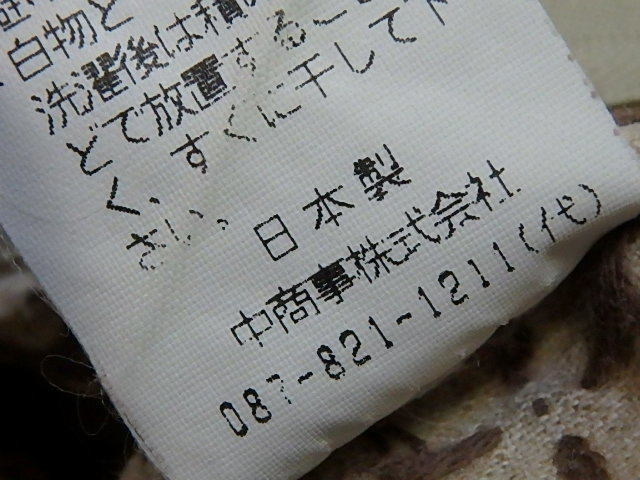 白物と
洗濯後は積
どで放置するこ
く、すぐに干して下
さい。
日本製
中商事株式会社
087-821-1211(代)